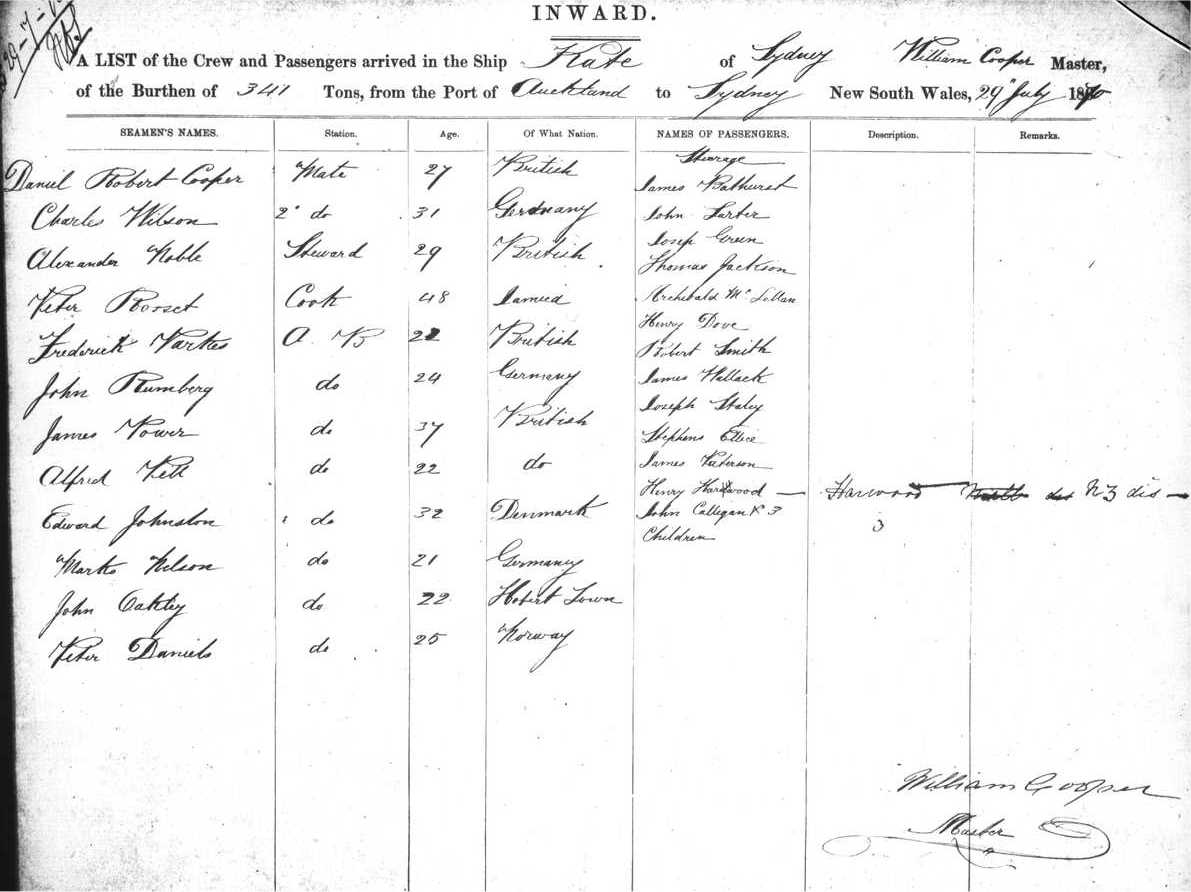 29-7-
INWARD.
A LIST of the Crew and Passengers arrived in the Ship Kate of Sydney William Cooper Master,
of the Burthen of 341 Tons, from the Port of Auckland to Sydney New South Wales, 29" July 1870
SEAMEN'S NAMES. Station. Age. Of What Nation. NAMES OF PASSENGERS. Description. Remarks.
Steerage
Daniel Robert Cooper Mate 27 British James Bathurst
Charles Wilson 2" do 31 Germany John Larter
Joseph Green
Alexander Noble Steward 29 British Thomas Jackson
Peter Rosset Cook 48 Archibald Mc Lellan
Henry Dove
Frederick Parkes A. B British Robert Smith
John Rumberg do 24 Germany James Hallack
Joseph Staley
James Power do 37 British Stephens Ellice
Alfred Pell do 22 do James Paterson
Henry Hardwood — Harwood N 3 dis —
Edward Johnston do 32 Denmark John Callegan & 3
3
Children
Marks Nelson do 21 Germany
John Oakley do 22 Hobert Town
Peter Daniels do 25 Norway
William Cooper
Master